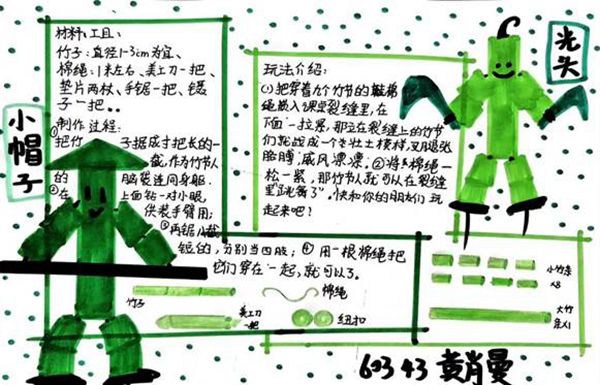 小帽子
材料、工具：
竹子：直径1-3cm为宜、
棉绳：1米左右、美工刀一把、
垫片两枚、手锯一把、镊
子一把..
制作过程：
①把竹子锯成寸把长的一
的
②在
截，作为竹节人
脑袋连同身躯.
上面钻一对小眼，
供装手臂用；
③再锯八截
短的，分别当四肢；④用一根棉绳把
它们穿在一起，就可以了。
竹子
美工刀
一把
棉绳
纽扣
玩法介绍：
①把穿着九个竹节的鞋棉
绳嵌入课桌裂缝里，在
下面一拉紧，那立在裂缝上的竹节
们就站成一个壮士模样，叉腿张
胳膊，威风凛凛，②将手棉绳一
松一紧，那竹节人就可以在裂缝
里"跳舞了"。快和你的朋友们玩
起来吧？
光头
小竹条
x8
大竹
条x1
603 43 黄肖曼